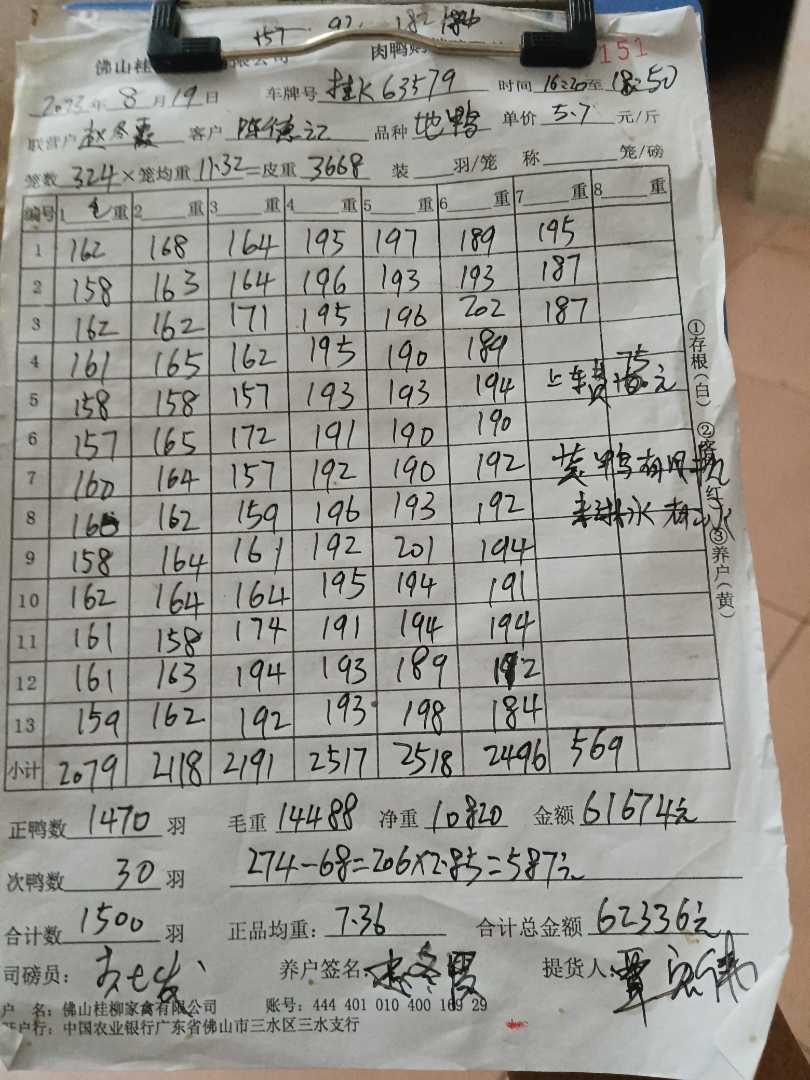 157 92 182 186
佛山桂 限公司 肉鸭购 151
2023年8月19日 车牌号 桂K63579 时间 16:20至18:50
联营户 赵冬霞 客户 陈德记 品种 地鸭 单价 5.7 元/斤
笼数 324×笼均重 11.32=皮重 3668 装 羽/笼 称 笼/磅
编号 1 毛重 2 重 3 重 4 重 5 重 6 重 7 重 8 重
1 162 168 164 195 197 189 195
2 158 163 164 196 193 193 187
3 162 162 171 195 196 202 187
4 161 165 162 195 190 189
5 158 158 157 193 193 194 上车费 75元
6 157 165 172 191 190 190
7 160 164 157 192 190 192
8 160 162 159 196 193 192
9 158 164 161 192 201 194
10 162 164 164 195 194 191
11 161 158 174 191 194 194
12 161 163 194 193 189 192
13 159 162 192 193 198 184
小计 2079 2118 2191 2517 2518 2496 569
①存根(白) ② 红) ③养户(黄)
正鸭数 1470 羽 毛重 14488 净重 10820 金额 61674元
次鸭数 30 羽 274-68=206×2.85=587元
合计数 1500 羽 正品均重: 7.36 合计总金额 62336元
司磅员: 养户签名: 赵冬霞 提货人:
户 名: 佛山桂柳家禽有限公司 账号: 444 401 010 400 169 29
开户行: 中国农业银行广东省佛山市三水区三水支行